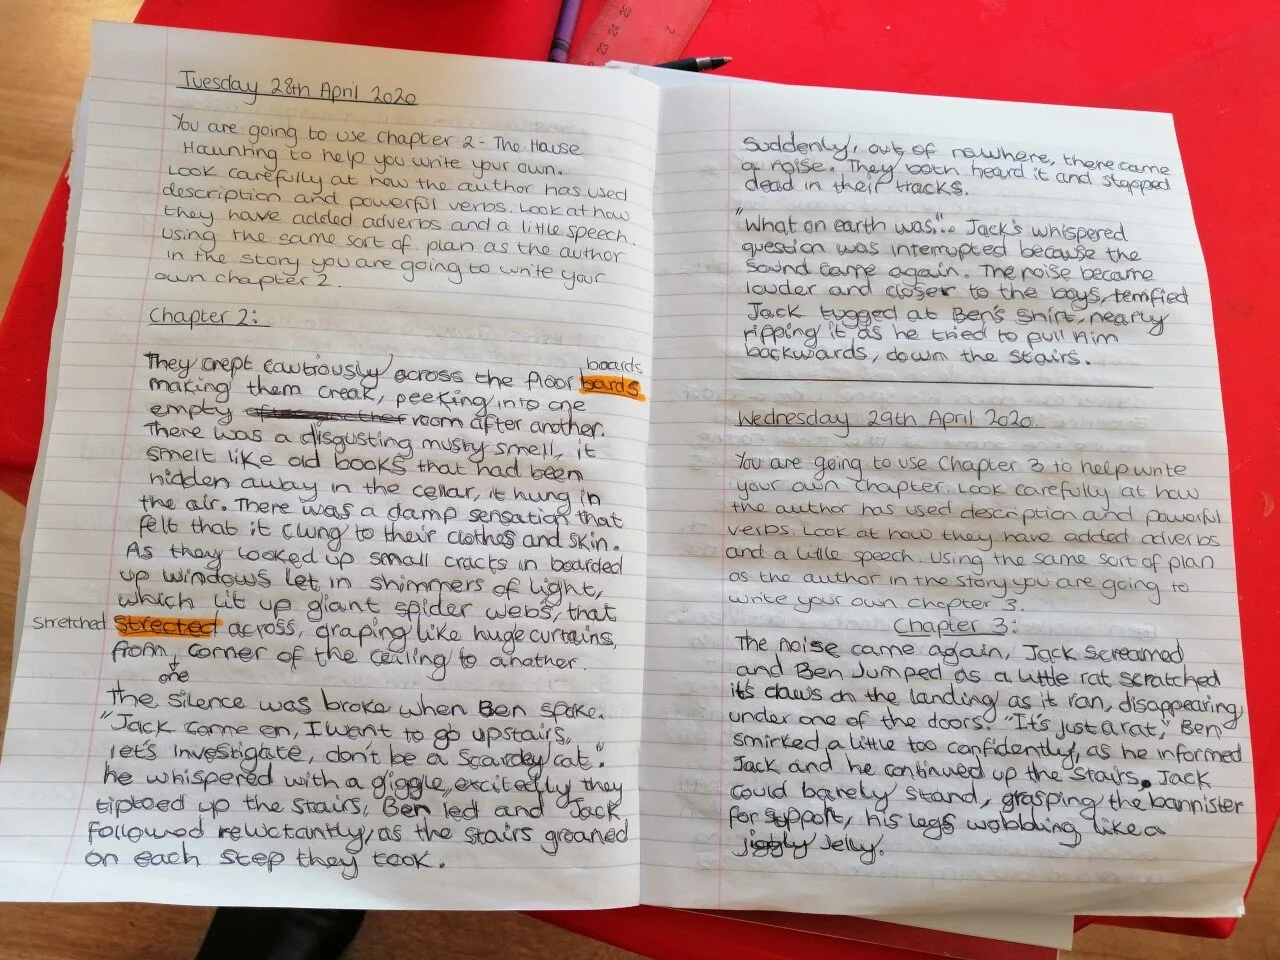 Tuesday 28th April 2020
You are going to use Chapter 2 - The House
Haunting to help you write your own.
Look carefully at how the author has used
description and powerful verbs. Look at how
they have added adverbs and a little speech.
using the same sort of plan as the author
in the story you are going to write your
own chapter 2.
Chapter 2:
boards
They crept cautiously across the floor bards
making them creak, peeking into one
empty room after another.
There was a disgusting musty smell, it
smelt like old books that had been
hidden away in the cellar, it hung in
the air. There was a damp sensation that
felt that it clung to their clothes and skin.
As they looked up small cracts in boarded
up windows let in shimmers of light,
which lit up giant spider webs, that
stretched strected across, graping like huge curtains,
from corner of the ceiling to another.
one
The silence was broke when Ben spoke.
"Jack come on, I want to go upstairs,
let's investigate, don't be a scardey cat."
he whispered with a giggle, excitedly they
tiptoed up the stairs, Ben led and Jack
followed reluctantly, as the stairs groaned
on each step they took.
Suddenly, out of nowhere, there came
a noise. They both heard it and stopped
dead in their tracks.
"What on earth was"... Jack's whispered
question was interrupted because the
sound came again. The noise became
louder and closer to the boys, terrified
Jack tugged at Ben's shirt, nearly
ripping it as he tried to pull him
backwards, down the stairs.
Wednesday 29th April 2020.
You are going to use Chapter 3 to help write
your own chapter. Look carefully at how
the author has used description and powerful
verbs. Look at how they have added adverbs
and a little speech. Using the same sort of plan
as the author in the story you are going to
write your own chapter 3.
Chapter 3:
The noise came again, Jack screamed
and Ben Jumped as a little rat scratched
it's claws on the landing as it ran, disappearing
under one of the doors. "It's just a rat," Ben
smirked a little too confidently, as he informed
Jack and he continued up the stairs. Jack
could barely stand, grasping the bannister
for support, his legs wobbling like a
jiggly Jelly.